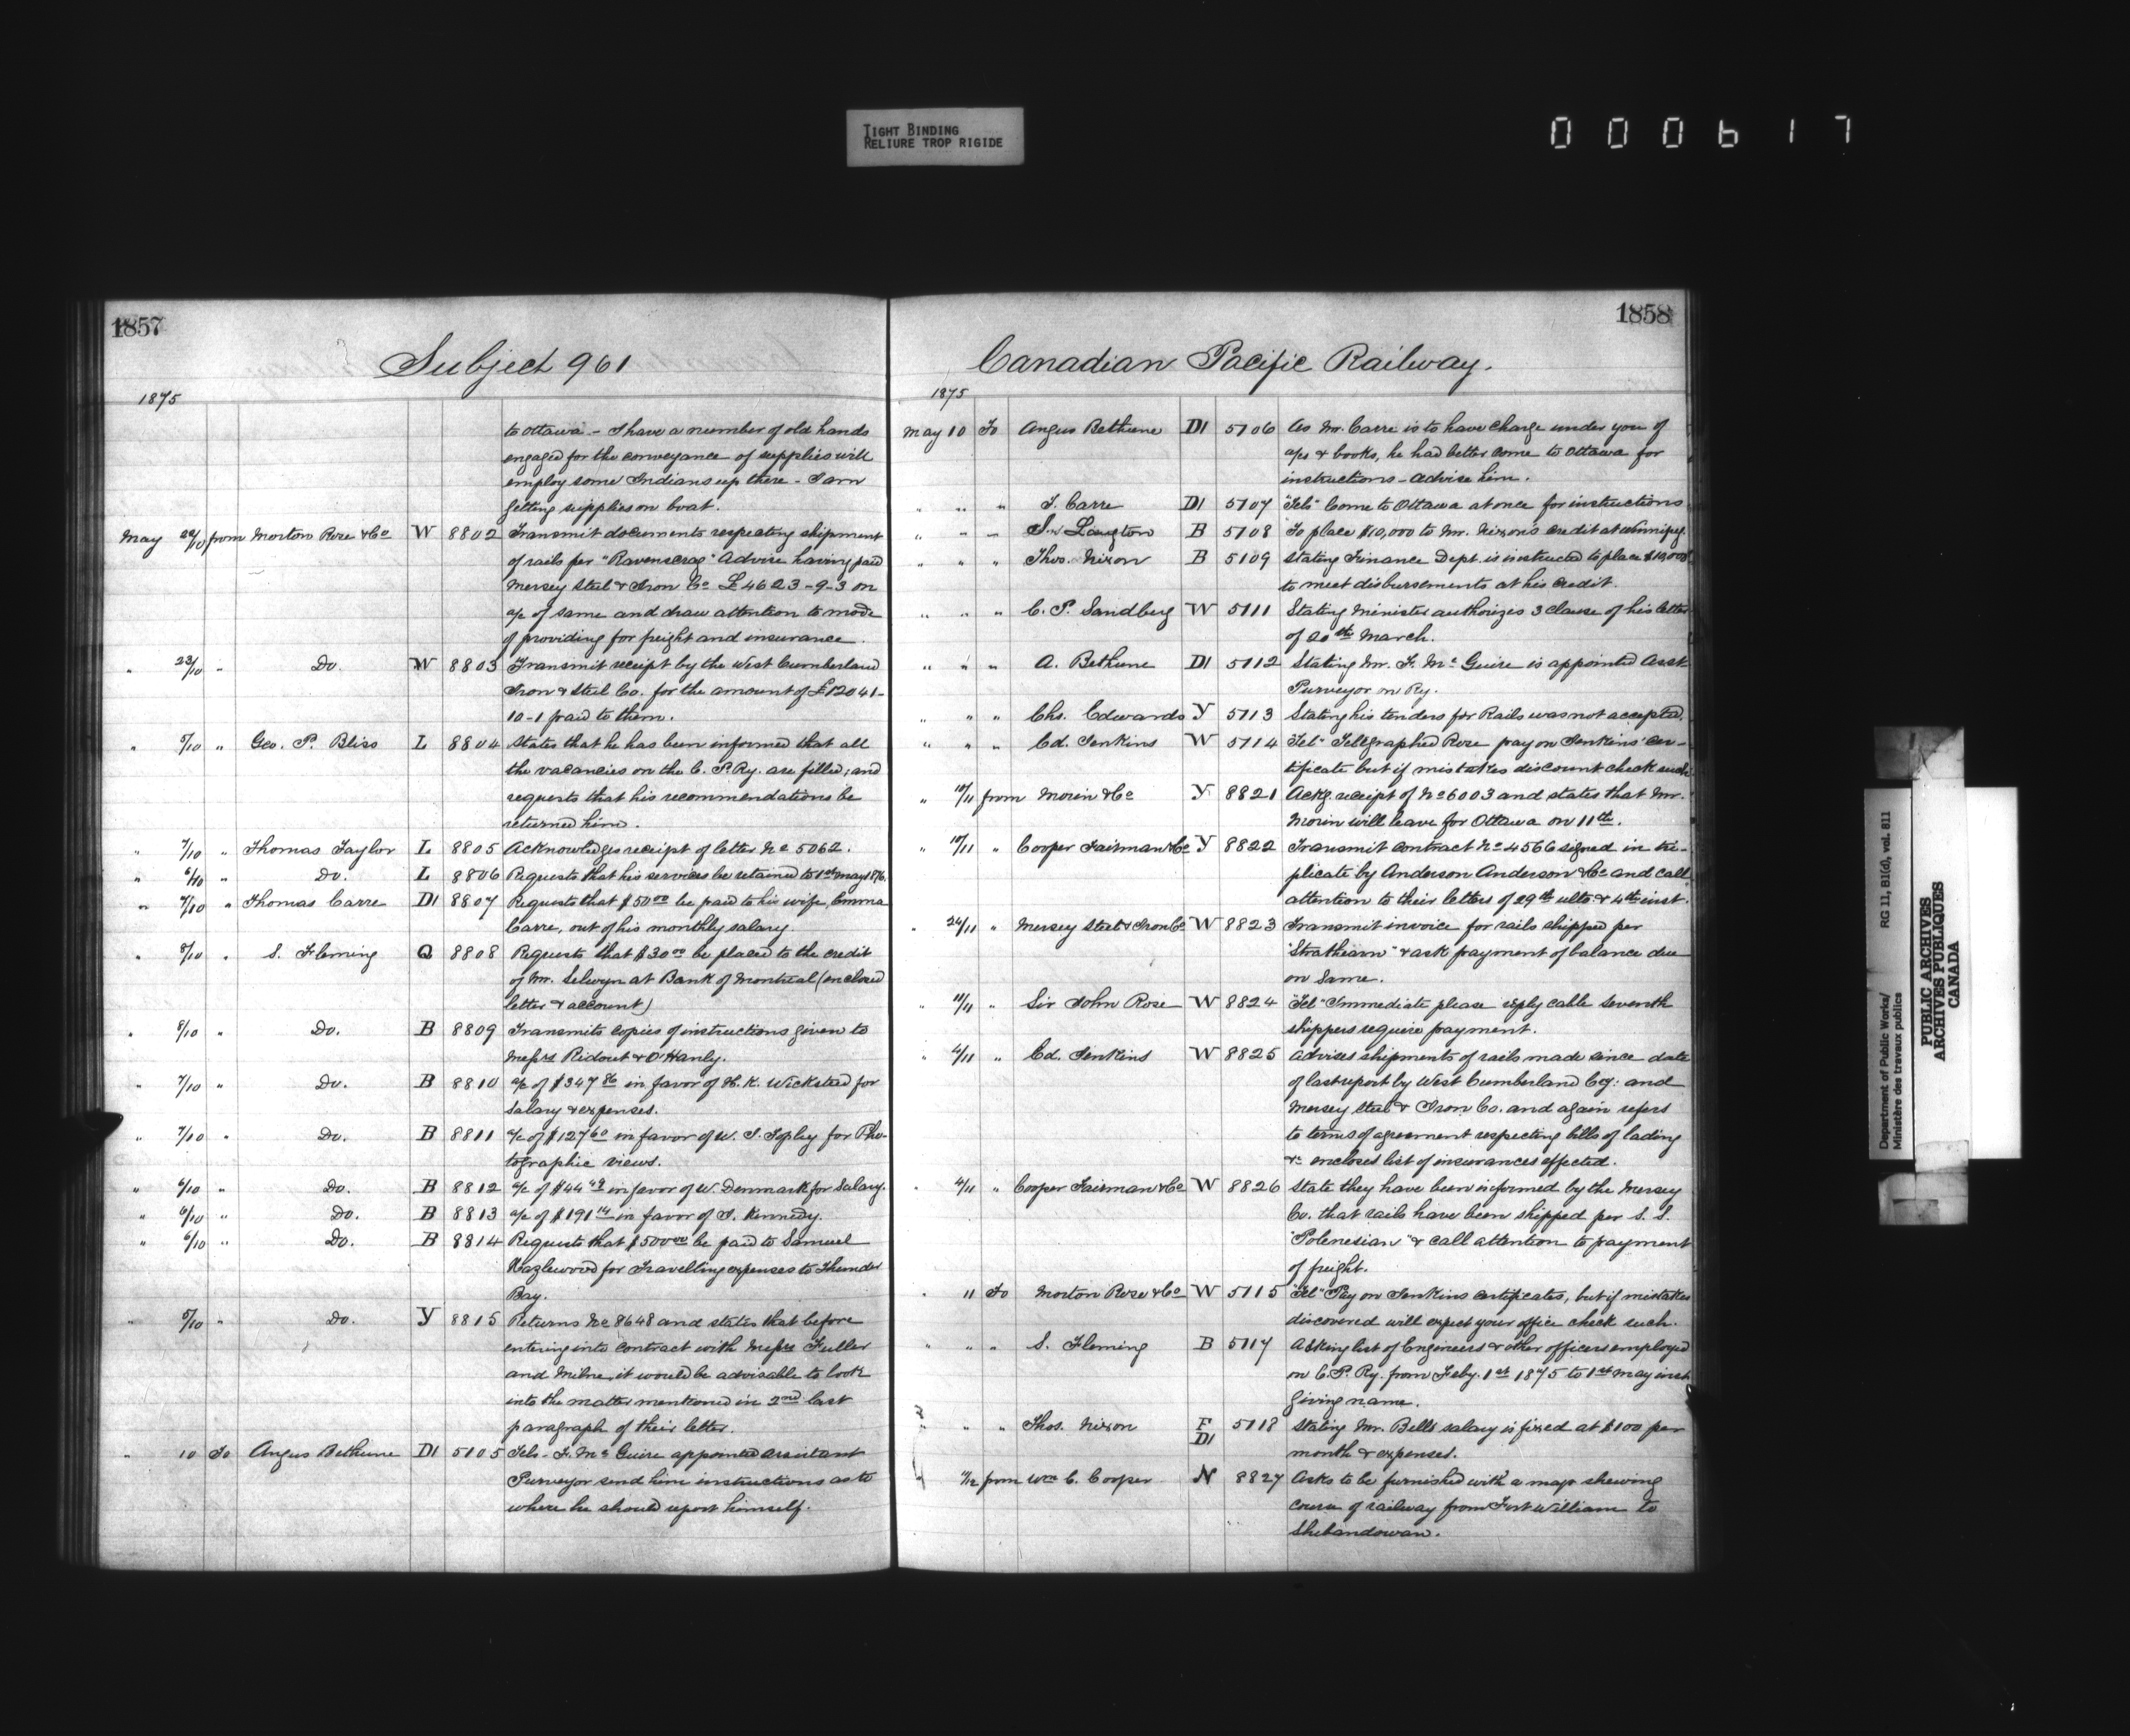 TIGHT BINDING
RELIURE TROP RIGIDE
000617
1857
Subject 961
1875
to Ottawa - I have a number of old hands
engaged for the conveyance of supplies will
employ some Indians up there - I am
getting supplies on boat.
May 22/10 from Morton Rose & Co W 8802 Transmit documents respecting shipment
of rails per "Ravenscrag" Advise having paid
Mersey Steel & Iron Co £4623-9-3 on
a/c of same and draw attention to mode
of providing for freight and insurance.
" 23/10 " Do. W 8803 Transmit receipt by the West Cumberland
Iron & Steel Co. for the amount of £12041-
10-1 paid to them.
" 5/10 " Geo. P. Bliss L 8804 States that he has been informed that all
the vacancies on the C. P. Ry. are filled; and
requests that his recommendations be
returned him.
" 7/10 " Thomas Taylor L 8805 Acknowledges receipt of letter No 5062.
" 6/10 " Do. L 8806 Requests that his services be retained to 1st May 1876.
" 7/10 " Thomas Carre D1 8807 Requests that $50.00 be paid to his wife, Emma
Carre, out of his monthly salary.
" 8/10 " S. Fleming Q 8808 Requests that $30.00 be placed to the credit
of Mr. Selwyn at Bank of Montreal (enclosed
letter & account)
" 8/10 " Do. B 8809 Transmits copies of instructions given to
Messrs Ridout & O'Hanly.
" 7/10 " Do. B 8810 a/c of $347 in favor of H. K. Wicksteed for
salary & expenses.
" 7/10 " Do. B 8811 a/c of $127 60 in favor of W. J. Topley for Pho-
tographic views.
" 6/10 " Do. B 8812 a/c of $44 in favor of W. Denmark for Salary.
" 6/10 " Do. B 8813 a/c of $191 14 in favor of J. Kennedy.
" 6/10 " Do. B 8814 Requests that $500 00 be paid to Samuel
Hazlewood for Travelling expenses to Thunder
Bay.
" 5/10 " Do. Y 8815 Returns No 8648 and states that before
entering into contract with Messrs Fuller
and Milne, it would be advisable to look
into the matter mentioned in 2nd last
paragraph of their letter.
" 10 To Angus Bethune D1 5105 Tel- F. McGuire appointed assistant
Purveyor send him instructions as to
where he should report himself.
1858
Canadian Pacific Railway.
1875
May 10 To Angus Bethune D1 5106 As Mr. Carre is to have charge under you of
a/cs & books, he had better come to Ottawa for
instructions - advise him.
" " " T. Carre D1 5107 "Tel" Come to Ottawa at once for instructions
" " " J. Langton B 5108 To place $10,000 to Mr. Nixon's credit at Winnipeg.
" " " Thos. Nixon B 5109 Stating Finance Dept. is instructed to place $10,000
to meet disbursements at his credit.
" " " C. P. Sandberg W 5111 Stating Minister authorizes 3 clause of his letter
of 20th March.
" " " A. Bethune D1 5112 Stating Mr. F. McGuire is appointed Asst
Purveyor on Ry.
" " " Chs. Edwards Y 5113 Stating his tenders for Rails was not accepted.
" " " Ed. Jenkins W 5114 "Tel" Telegraphed Rose pay on Jenkins' cer-
tificate but if mistakes discount check such
" 10/11 from Morin & Co Y 8821 Ackg. receipt of No 6003 and states that Mr.
Morin will leave for Ottawa on 11th.
" 10/11 " Cooper Fairman & Co Y 8822 Transmit contract No 4566 signed in tri-
plicate by Anderson Anderson & Co and call
attention to their letters of 29th ulto. & 4th inst.
" 24/11 " Mersey Steel & Iron Co W 8823 Transmit invoice for rails shipped per
"Strathearn" & ask payment of balance due
on same.
" 11/11 " Sir John Rose W 8824 "Tel" Immediate please reply cable seventh
shippers require payment.
" 4/11 " Ed. Jenkins W 8825 Advises shipments of rails made since date
of last report by West Cumberland Coy: and
Mersey Steel & Iron Co. and again refers
to terms of agreement respecting bills of lading
&c encloses list of insurances effected.
" 4/11 " Cooper Fairman & Co W 8826 State they have been informed by the Mersey
Co. that rails have been shipped per S. S.
"Polenesian" & call attention to payment
of freight.
" 11 To Morton Rose & Co W 5115 "Tel" Pay on Jenkins certificates, but if mistakes
discovered will expect your office check such.
" " " S. Fleming B 5117 Asking list of Engineers & other officers employed
on C. P. Ry. from Feby. 1st 1875 to 1st May inst
giving name.
" " " Thos. Nixon F D1 5118 Stating Mr. Bells salary is fixed at $100 per
month & expenses.
from Wm C. Cooper N 8827 Asks to be furnished with a map shewing
course of railway from Fort William to
Shebandowan.
Department of Public Works/ RG 11, B1(d), vol. 811
Ministère des travaux publics
PUBLIC ARCHIVES
ARCHIVES PUBLIQUES
CANADA